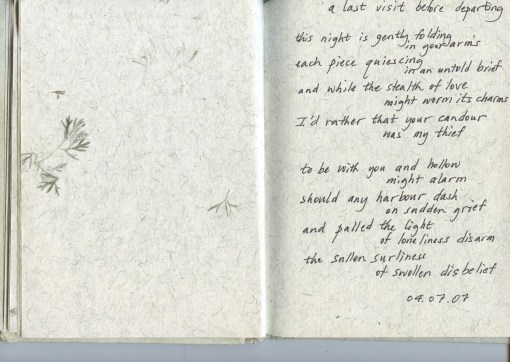 a last visit before departing
this night is gently folding
in your arms
each piece quiescing
in an untold brief
and while the stealth of love
might worm its charms
I'd rather that your candour
was my thief
to be with you and hollow
might alarm
should any harbour dash
on sudden grief
and palled the light
of loneliness disarm
the sullen surliness
of swollen disbelief
04.07.07